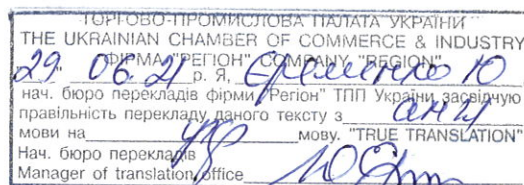 ТОРГОВО-ПРОМИСЛОВА ПАЛАТА УКРАЇНИ
THE UKRAINIAN CHAMBER OF COMMERCE & INDUSTRY
ФІРМА "РЕГІОН" COMPANY "REGION"
29. 06. 21 р. Я, Єременко Ю
нач. бюро перекладів фірми "Регіон" ТПП України засвідчую
правільність перекладу даного тексту з англ
мови на укр мову. "TRUE TRANSLATION"
Нач. бюро перекладів
Manager of translation office